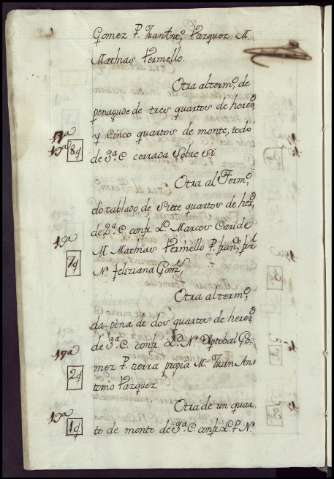 Gomez P. Juan Anto Vazquez M.
Mathias Vermello
Otra al termo de
penagude de tres quartos de hered
y Cinco quartos de monte, todo
13a
19a 8q de 3a C cerrada sobre si
Otra al Termo
do tablado de Siete quartos de hered
de 2a C confi L. Marcos
19a M. Mathias Vermello P.
7q N. feliziana Gonz
Otra al termo
da pena de dos quartos de hered
de 3a C confi L. N. Xptobal Go
19a mez P. tierra propia M. Juan An
2q tonio Vazquez
Otra de un quar
19a
1q to de monte de 3a C confi L. P. N.